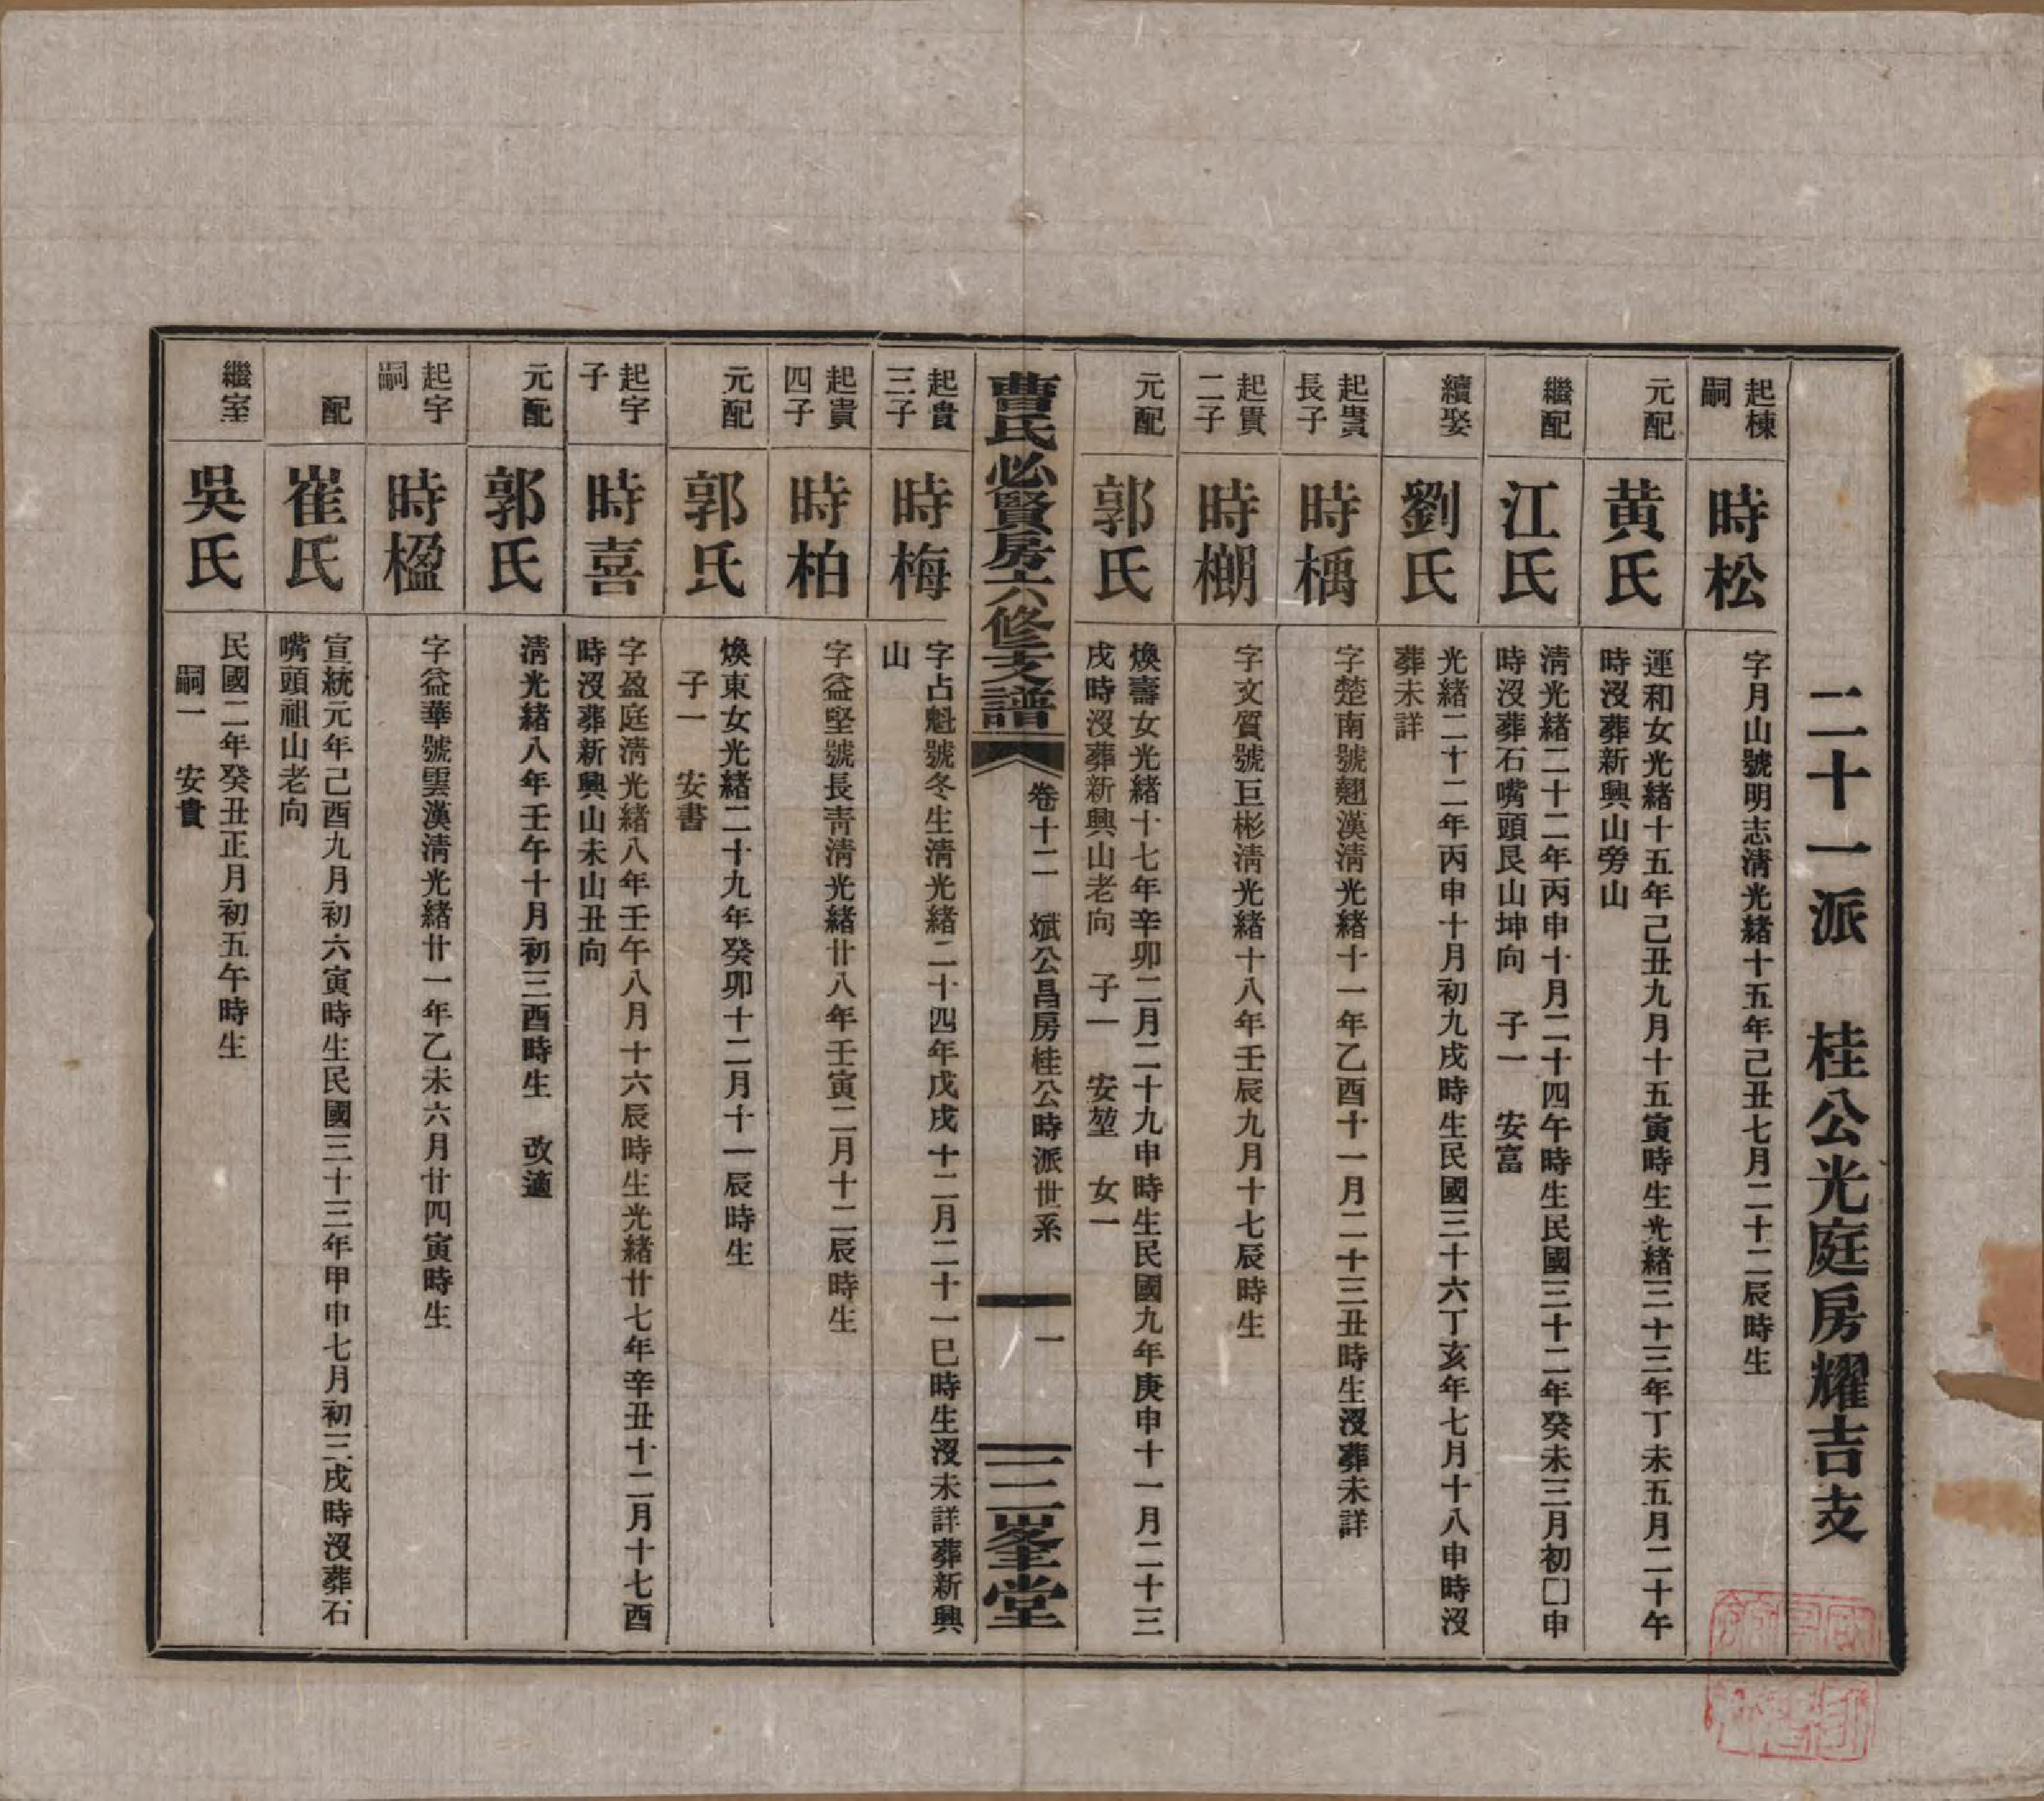 二十一派　桂公光庭房耀吉支
起棟
嗣
時松
字月山號明志清光緒十五年己丑七月二十二辰時生
元配
黄氏
運和女光緒十五年己丑九月十五寅時生光緒三十三年丁未五月二十午
時沒葬新興山旁山
繼配
江氏
清光緒二十二年丙申十月二十四午時生民國三十二年癸未三月初□申
時沒葬石嘴頭艮山坤向　子一　安富
續娶
劉氏
光緒二十二年丙申十月初九戌時生民國三十六丁亥年七月十八申時沒
葬未詳
起貴
長子
時楀
字楚南號翹漢清光緒十一年乙酉十一月二十三丑時生沒葬未詳
起貴
二子
時棚
字文質號巨彬清光緒十八年壬辰九月十七辰時生
元配
郭氏
煥壽女光緒十七年辛卯二月二十九申時生民國九年庚申十一月二十三
戌時沒葬新興山老向　子一　安堃　女一
曹氏必賢房六修支譜
卷十二　斌公昌房桂公時派世系
一
三峯堂
起貴
三子
時梅
字占魁號冬生清光緒二十四年戊戌十二月二十一巳時生沒未詳葬新興
山
起貴
四子
時柏
字益堅號長青清光緒廿八年壬寅二月十二辰時生
元配
郭氏
煥東女光緒二十九年癸卯十二月十一辰時生
子一　安書
起宇
子
時喜
字盈庭清光緒八年壬午八月十六辰時生光緒廿七年辛丑十二月十七酉
時沒葬新興山未山丑向
元配
郭氏
清光緒八年壬午十月初三酉時生　改適
起宇
嗣
時楹
字益華號雲漢清光緒廿一年乙未六月廿四寅時生
配
崔氏
宣統元年己酉九月初六寅時生民國三十三年甲申七月初三戌時沒葬石
嘴頭祖山老向
繼室
吳氏
民國二年癸丑正月初五午時生
嗣一　安貴